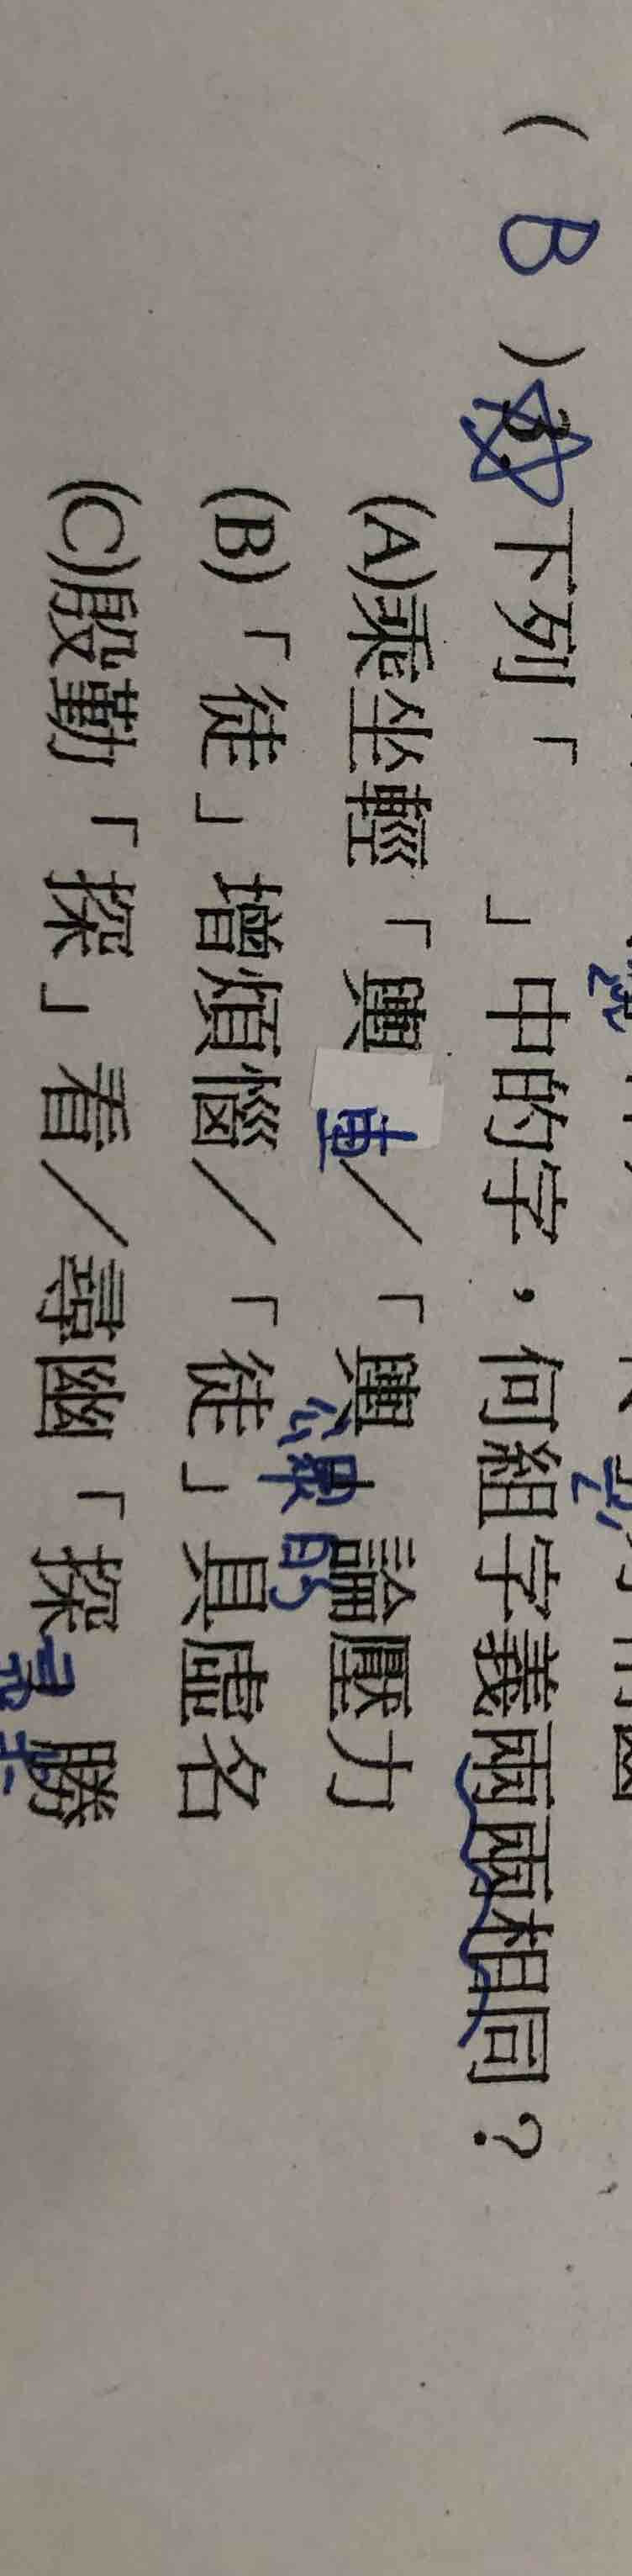 ( B ) 3. 下列「 」中的字，何組字義兩兩相同？
(A)乘坐輕「輿 車／「輿 論壓力
公眾的
(B)「徒」增煩惱／「徒」具虛名
(C)殷勤「探」看／尋幽「探 勝
尋求